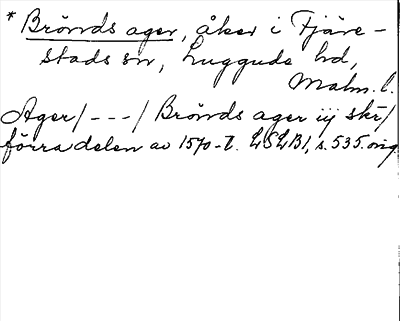 * Brönds ager, åker i Fjäre-
stads sn, Luggude hd,
Malm. l.
Ager/---/ Brönds ager iij skr/
förra delen av 1570-t. LSLB1, s. 535. orig